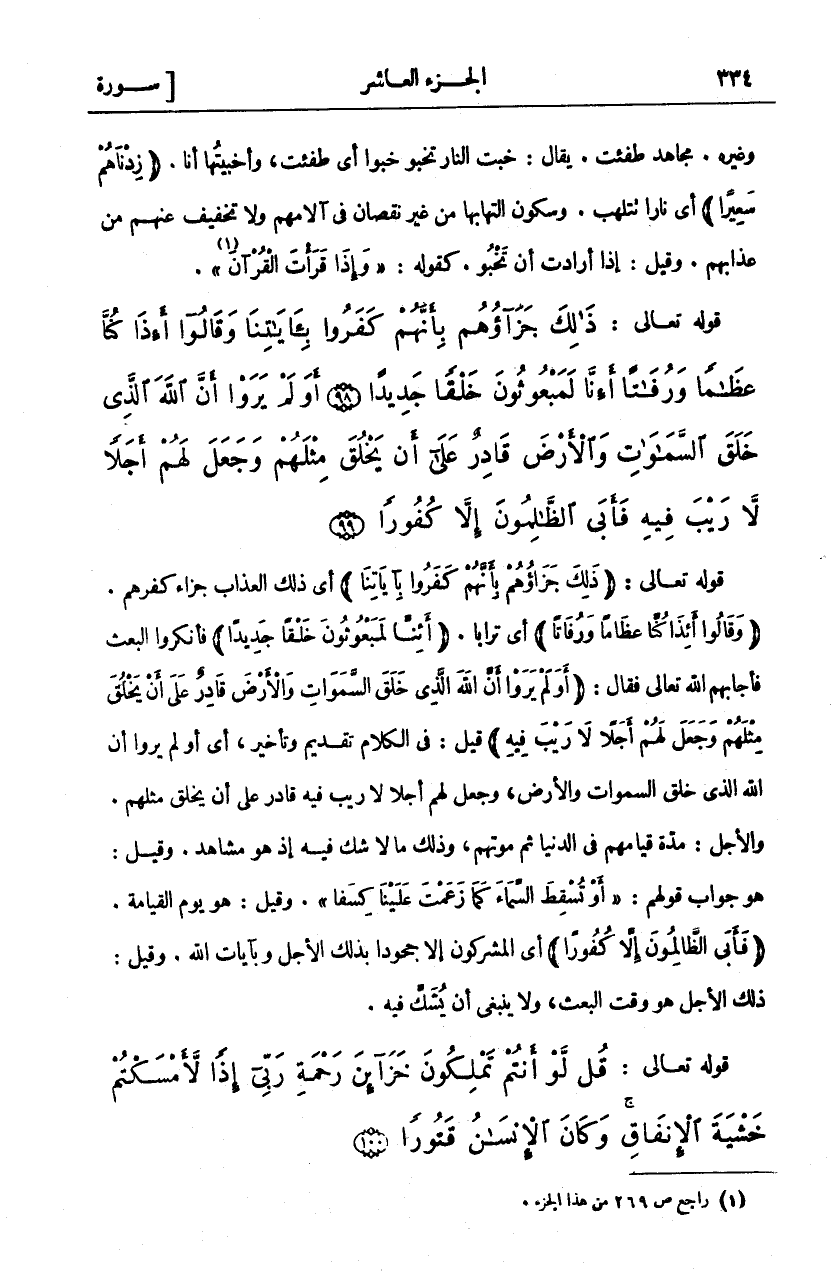 ٣٣٤ الجـزء العـاشر [ ســورة
وغيره . مجاهد طفئت . يقال : خبت النار تخبو خبوا أى طفئت، وأخبيتُها أنا . ( زِدْنَاهُمْ
سَعِيرًا ) أى نارا تتلهب . وسكون التهابها من غير نقصان فى آلامهم ولا تخفيف عنهـم من
عذابهم . وقيل : إذا أرادت أن تَخْبُو . كقوله : « وَإِذَا قَرَأْتَ الْقُرْآنَ (١) » .
قوله تعـالى : ذَٰلِكَ جَزَآؤُهُم بِأَنَّهُمْ كَفَرُوا بِـَٔايَـٰتِنَا وَقَالُوٓا أَءِذَا كُنَّا
عِظَـٰمًا وَرُفَـٰتًا أَءِنَّا لَمَبْعُوثُونَ خَلْقًا جَدِيدًا ﴿٩٨﴾ أَوَلَمْ يَرَوْا أَنَّ ٱللَّهَ ٱلَّذِى
خَلَقَ ٱلسَّمَـٰوَٰتِ وَٱلْأَرْضَ قَادِرٌ عَلَىٰٓ أَن يَخْلُقَ مِثْلَهُمْ وَجَعَلَ لَهُمْ أَجَلًا
لَّا رَيْبَ فِيهِ فَأَبَى ٱلظَّـٰلِمُونَ إِلَّا كُفُورًا ﴿٩٩﴾
قوله تعـالى : ( ذَلِكَ جَزَاؤُهُمْ بِأَنَّهُمْ كَفَرُوا بِآيَاتِنَا ) أى ذلك العذاب جزاء كفرهم .
( وَقَالُوا أَئِذَا كُنَّا عِظَامًا وَرُفَاتًا ) أى ترابا . ( أَئِنَّا لَمَبْعُوثُونَ خَلْقًا جَدِيدًا ) فأنكروا البعث
فأجابهم الله تعالى فقال : ( أَوَلَمْ يَرَوْا أَنَّ اللَّهَ الَّذِى خَلَقَ السَّمَوَاتِ وَالْأَرْضَ قَادِرٌ عَلَى أَنْ يَخْلُقَ
مِثْلَهُمْ وَجَعَلَ لَهُمْ أَجَلًا لَا رَيْبَ فِيهِ ) قيل : فى الكلام تقـديم وتأخير ، أى أو لم يروا أن
الله الذى خلق السموات والأرض، وجعل لهم أجلا لا ريب فيه قادر على أن يخلق مثلهم .
والأجل : مدّة قيامهم فى الدنيا ثم موتهم، وذلك ما لا شك فيـه إذ هو مشاهد . وقيـل :
هو جواب قولهم : « أَوْ تُسْقِطَ السَّمَاءَ كَمَا زَعَمْتَ عَلَيْنَا كِسَفًا » . وقيل : هو يوم القيامة .
( فَأَبَى الظَّالِمُونَ إِلَّا كُفُورًا ) أى المشركون إلا جحودا بذلك الأجل وبآيات الله . وقيل :
ذلك الأجل هو وقت البعث، ولا ينبغى أن يُشَكَّ فيه .
قوله تعـالى : قُل لَّوْ أَنتُمْ تَمْلِكُونَ خَزَآئِنَ رَحْمَةِ رَبِّىٓ إِذًا لَّأَمْسَكْتُمْ
خَشْيَةَ ٱلْإِنفَاقِ ۚ وَكَانَ ٱلْإِنسَـٰنُ قَتُورًا ﴿١٠٠﴾
(١) راجع ص ٢٦٩ من هذا الجزء .